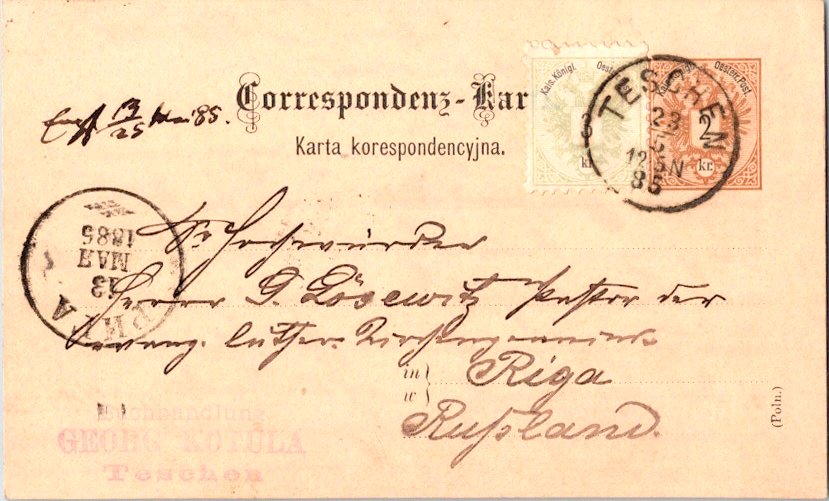 Correspondenz-Kar
Karta korespondencyjna.
13/25 Mai 85.
Kais. Königl. Oesterr.
3
kr
Oesterr. Post
2
kr.
TESCHEN
23
5
12 5N
85
РИГА
13
МАЯ
1885
Sr Hochwürden
Herrn G. Lösewitz Pastor der
evang. luther. Kirchengemeinde
in
w
Riga
Rußland.
(Poln.)
Buchhandlung
GEORG KOTULA
Teschen